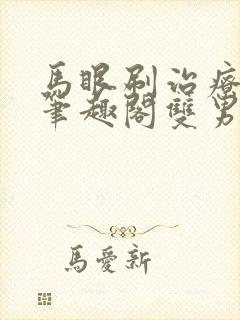 馬眼刷治療
筆趣閣雙男
馬愛新